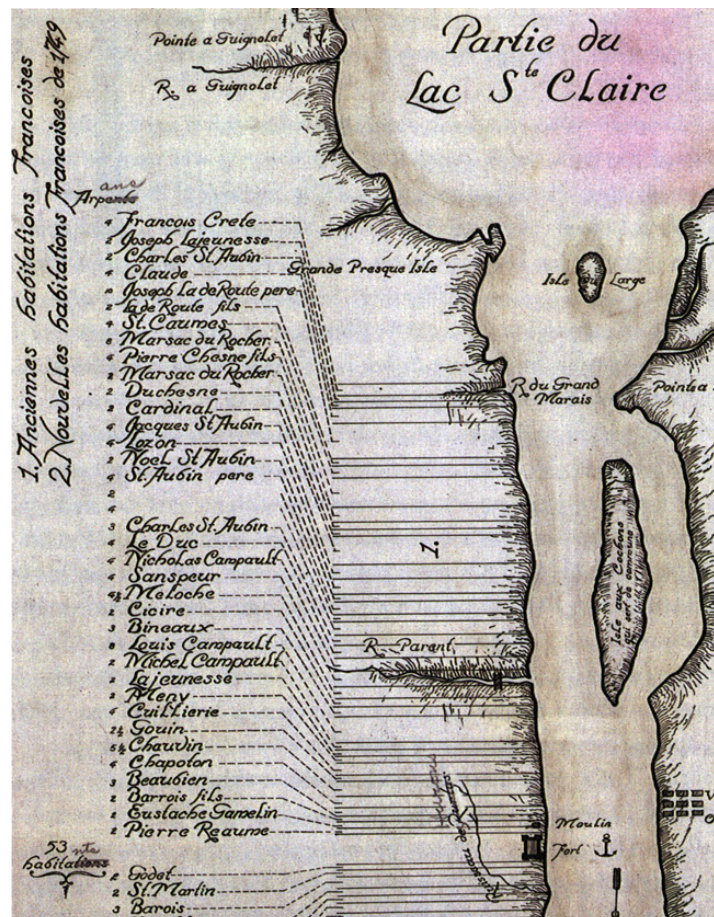 1. Anciennes habitations Francoises
2. Nouvelles habitations Francoises de 1749
Pointe a Guignolet
R. a Guignolet
Partie du
Lac Ste Claire
Arpents
4 Francois Crete
2 Joseph Lajeunesse
2 Charles St. Aubin
4 Claude
Joseph La de Route pere
2 La de Route fils
4 St. Caumes
6 Marsac du Rocher
4 Pierre Chesne fils
2 Marsac du Rocher
2 Duchesne
3 Cardinal
4 Jacques St Aubin
Lozon
2 Noel St Aubin
4 St. Aubin pere
2
4
3 Charles St. Aubin
4 Le Duc
4 Nicholas Campault
4 Sanspeur
4½ Meloche
2 Cicire
3 Bineaux
8 Louis Campault
2 Michel Campault
2 Lajeunesse
2 Meny
4 Cuillierie
2½ Gouin
5½ Chauvin
4 Chapoton
3 Beaubien
2 Barrois fils
2 Eustache Gamelin
2 Pierre Reaume
53
habitations
2 Godet
2 St. Martin
3 Barois
Grande Presque Isle
Isle au Large
R. du Grand
Marais
Pointe a
1.
Isle aux Cochons
qui sert de commune
R. Parent
Ruisseau des
Moulin
Fort